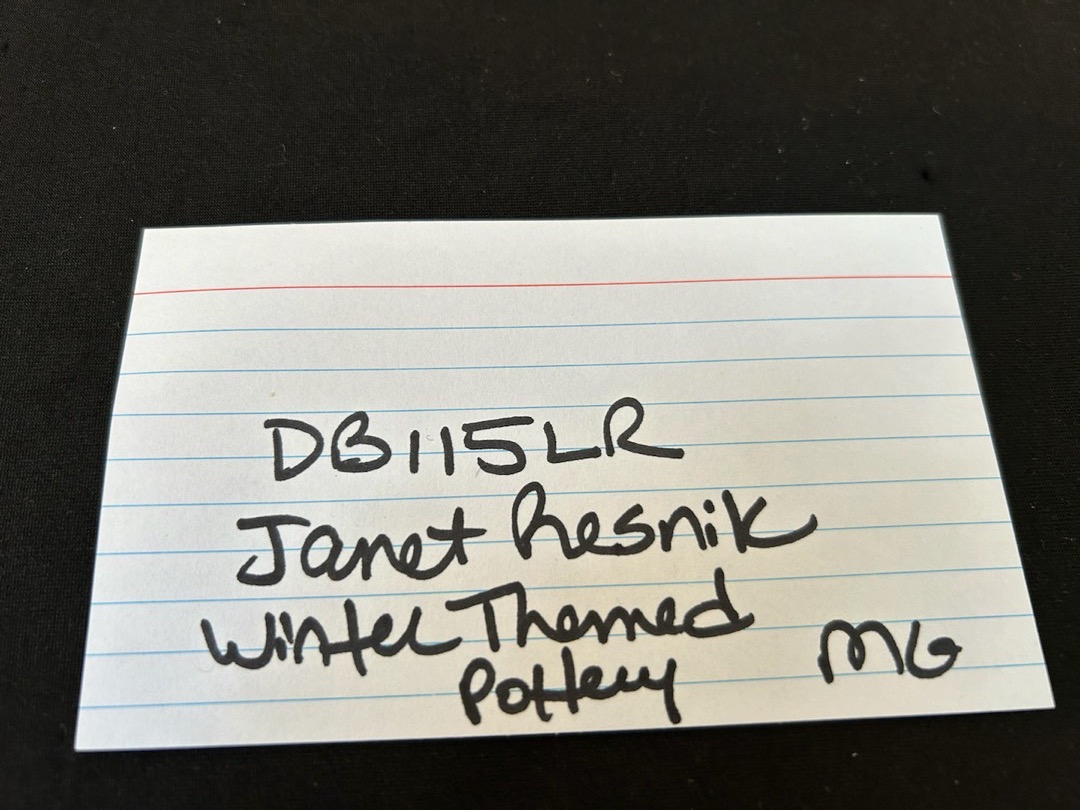 DB115LR
Janet Resnik
Winter Themed
Pottery MG